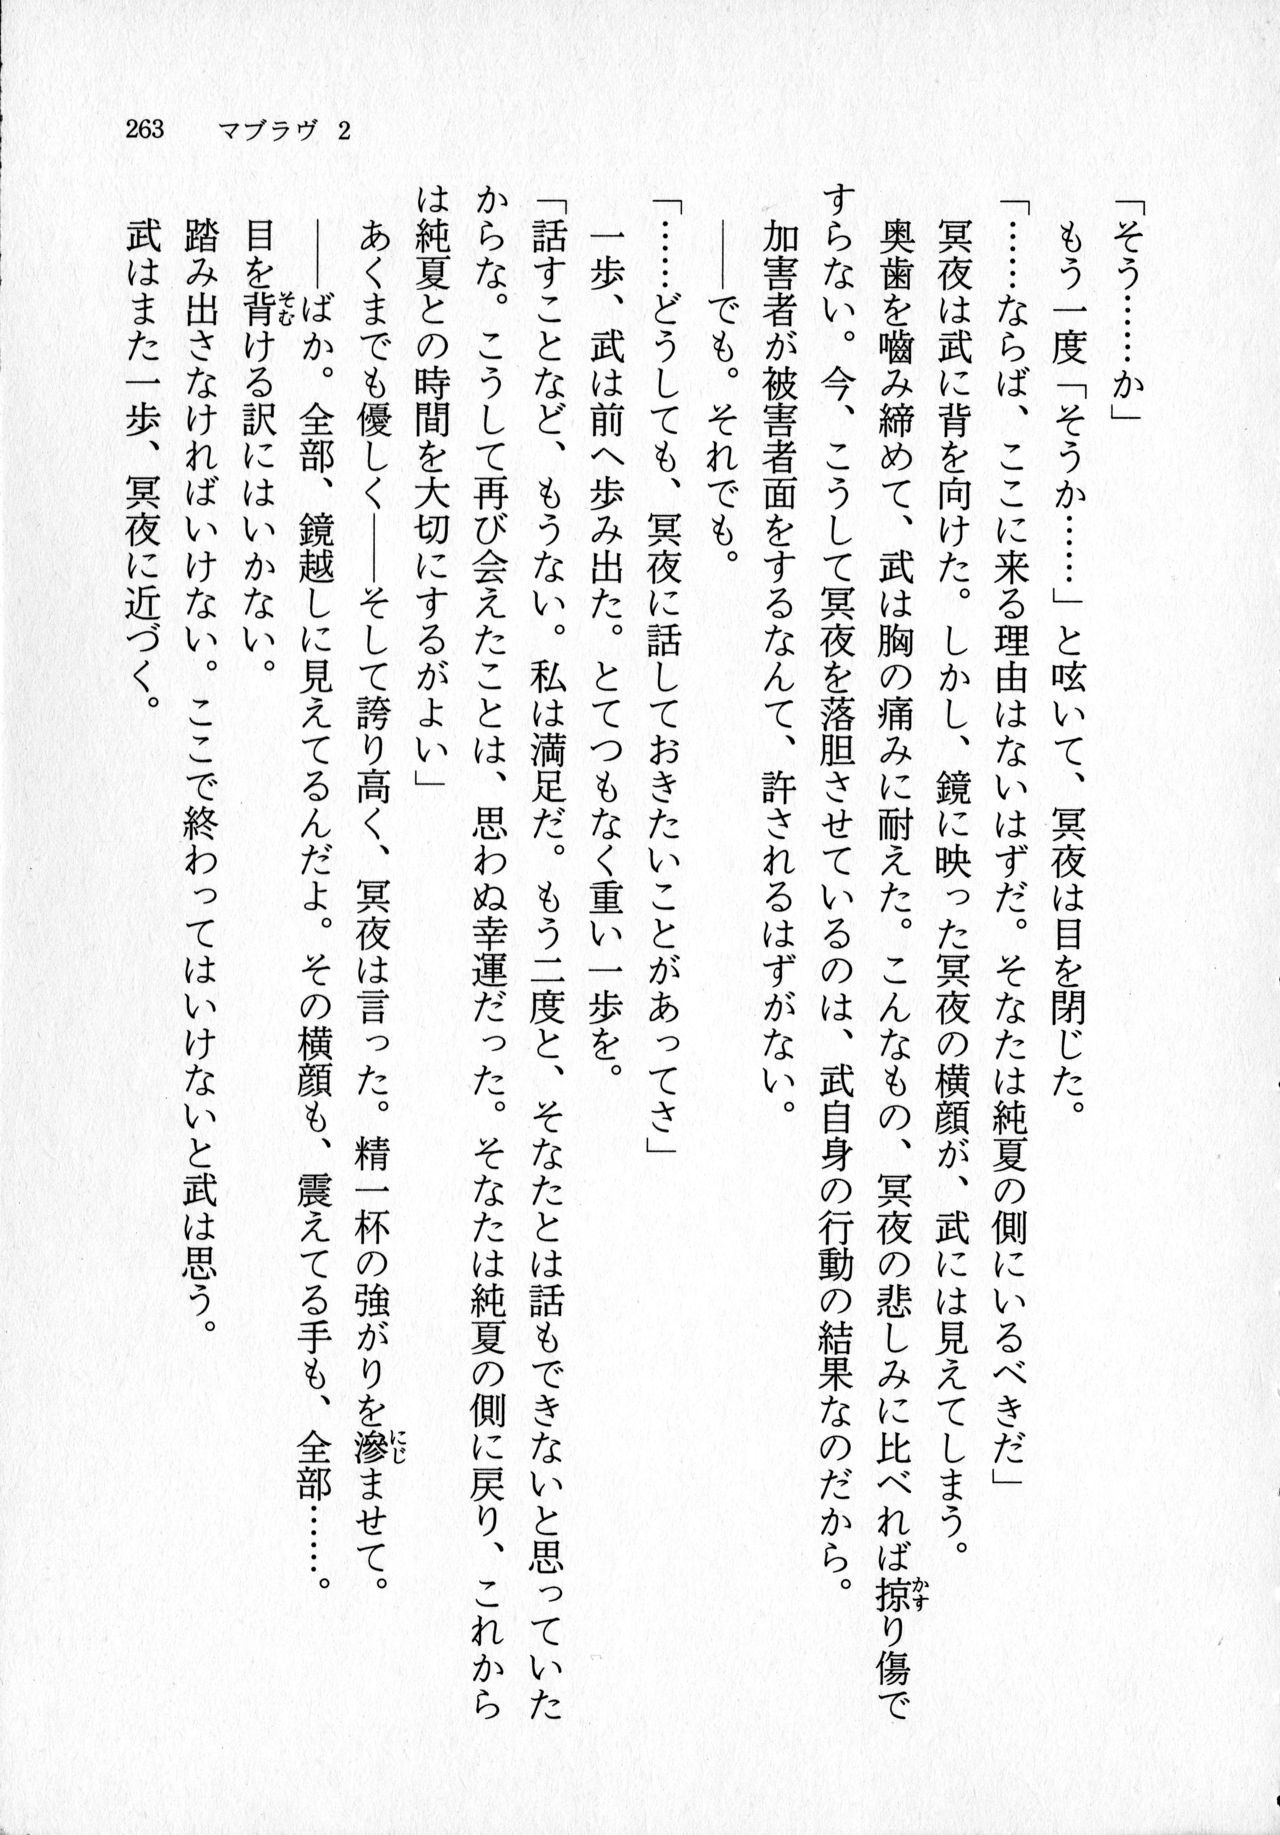 263 マブラヴ 2
「そう……か」
もう一度「そうか……」と呟いて、冥夜は目を閉じた。
「……ならば、ここに来る理由はないはずだ。そなたは純夏の側にいるべきだ」
冥夜は武に背を向けた。しかし、鏡に映った冥夜の横顔が、武には見えてしまう。
奥歯を嚙み締めて、武は胸の痛みに耐えた。こんなもの、冥夜の悲しみに比べれば掠り傷で
すらない。今、こうして冥夜を落胆させているのは、武自身の行動の結果なのだから。
加害者が被害者面をするなんて、許されるはずがない。
――でも。それでも。
「……どうしても、冥夜に話しておきたいことがあってさ」
一歩、武は前へ歩み出た。とてつもなく重い一歩を。
「話すことなど、もうない。私は満足だ。もう二度と、そなたとは話もできないと思っていた
からな。こうして再び会えたことは、思わぬ幸運だった。そなたは純夏の側に戻り、これから
は純夏との時間を大切にするがよい」
あくまでも優しく――そして誇り高く、冥夜は言った。精一杯の強がりを滲ませて。
――ばか。全部、鏡越しに見えてるんだよ。その横顔も、震えてる手も、全部……。
目を背ける訳にはいかない。
踏み出さなければいけない。ここで終わってはいけないと武は思う。
武はまた一歩、冥夜に近づく。